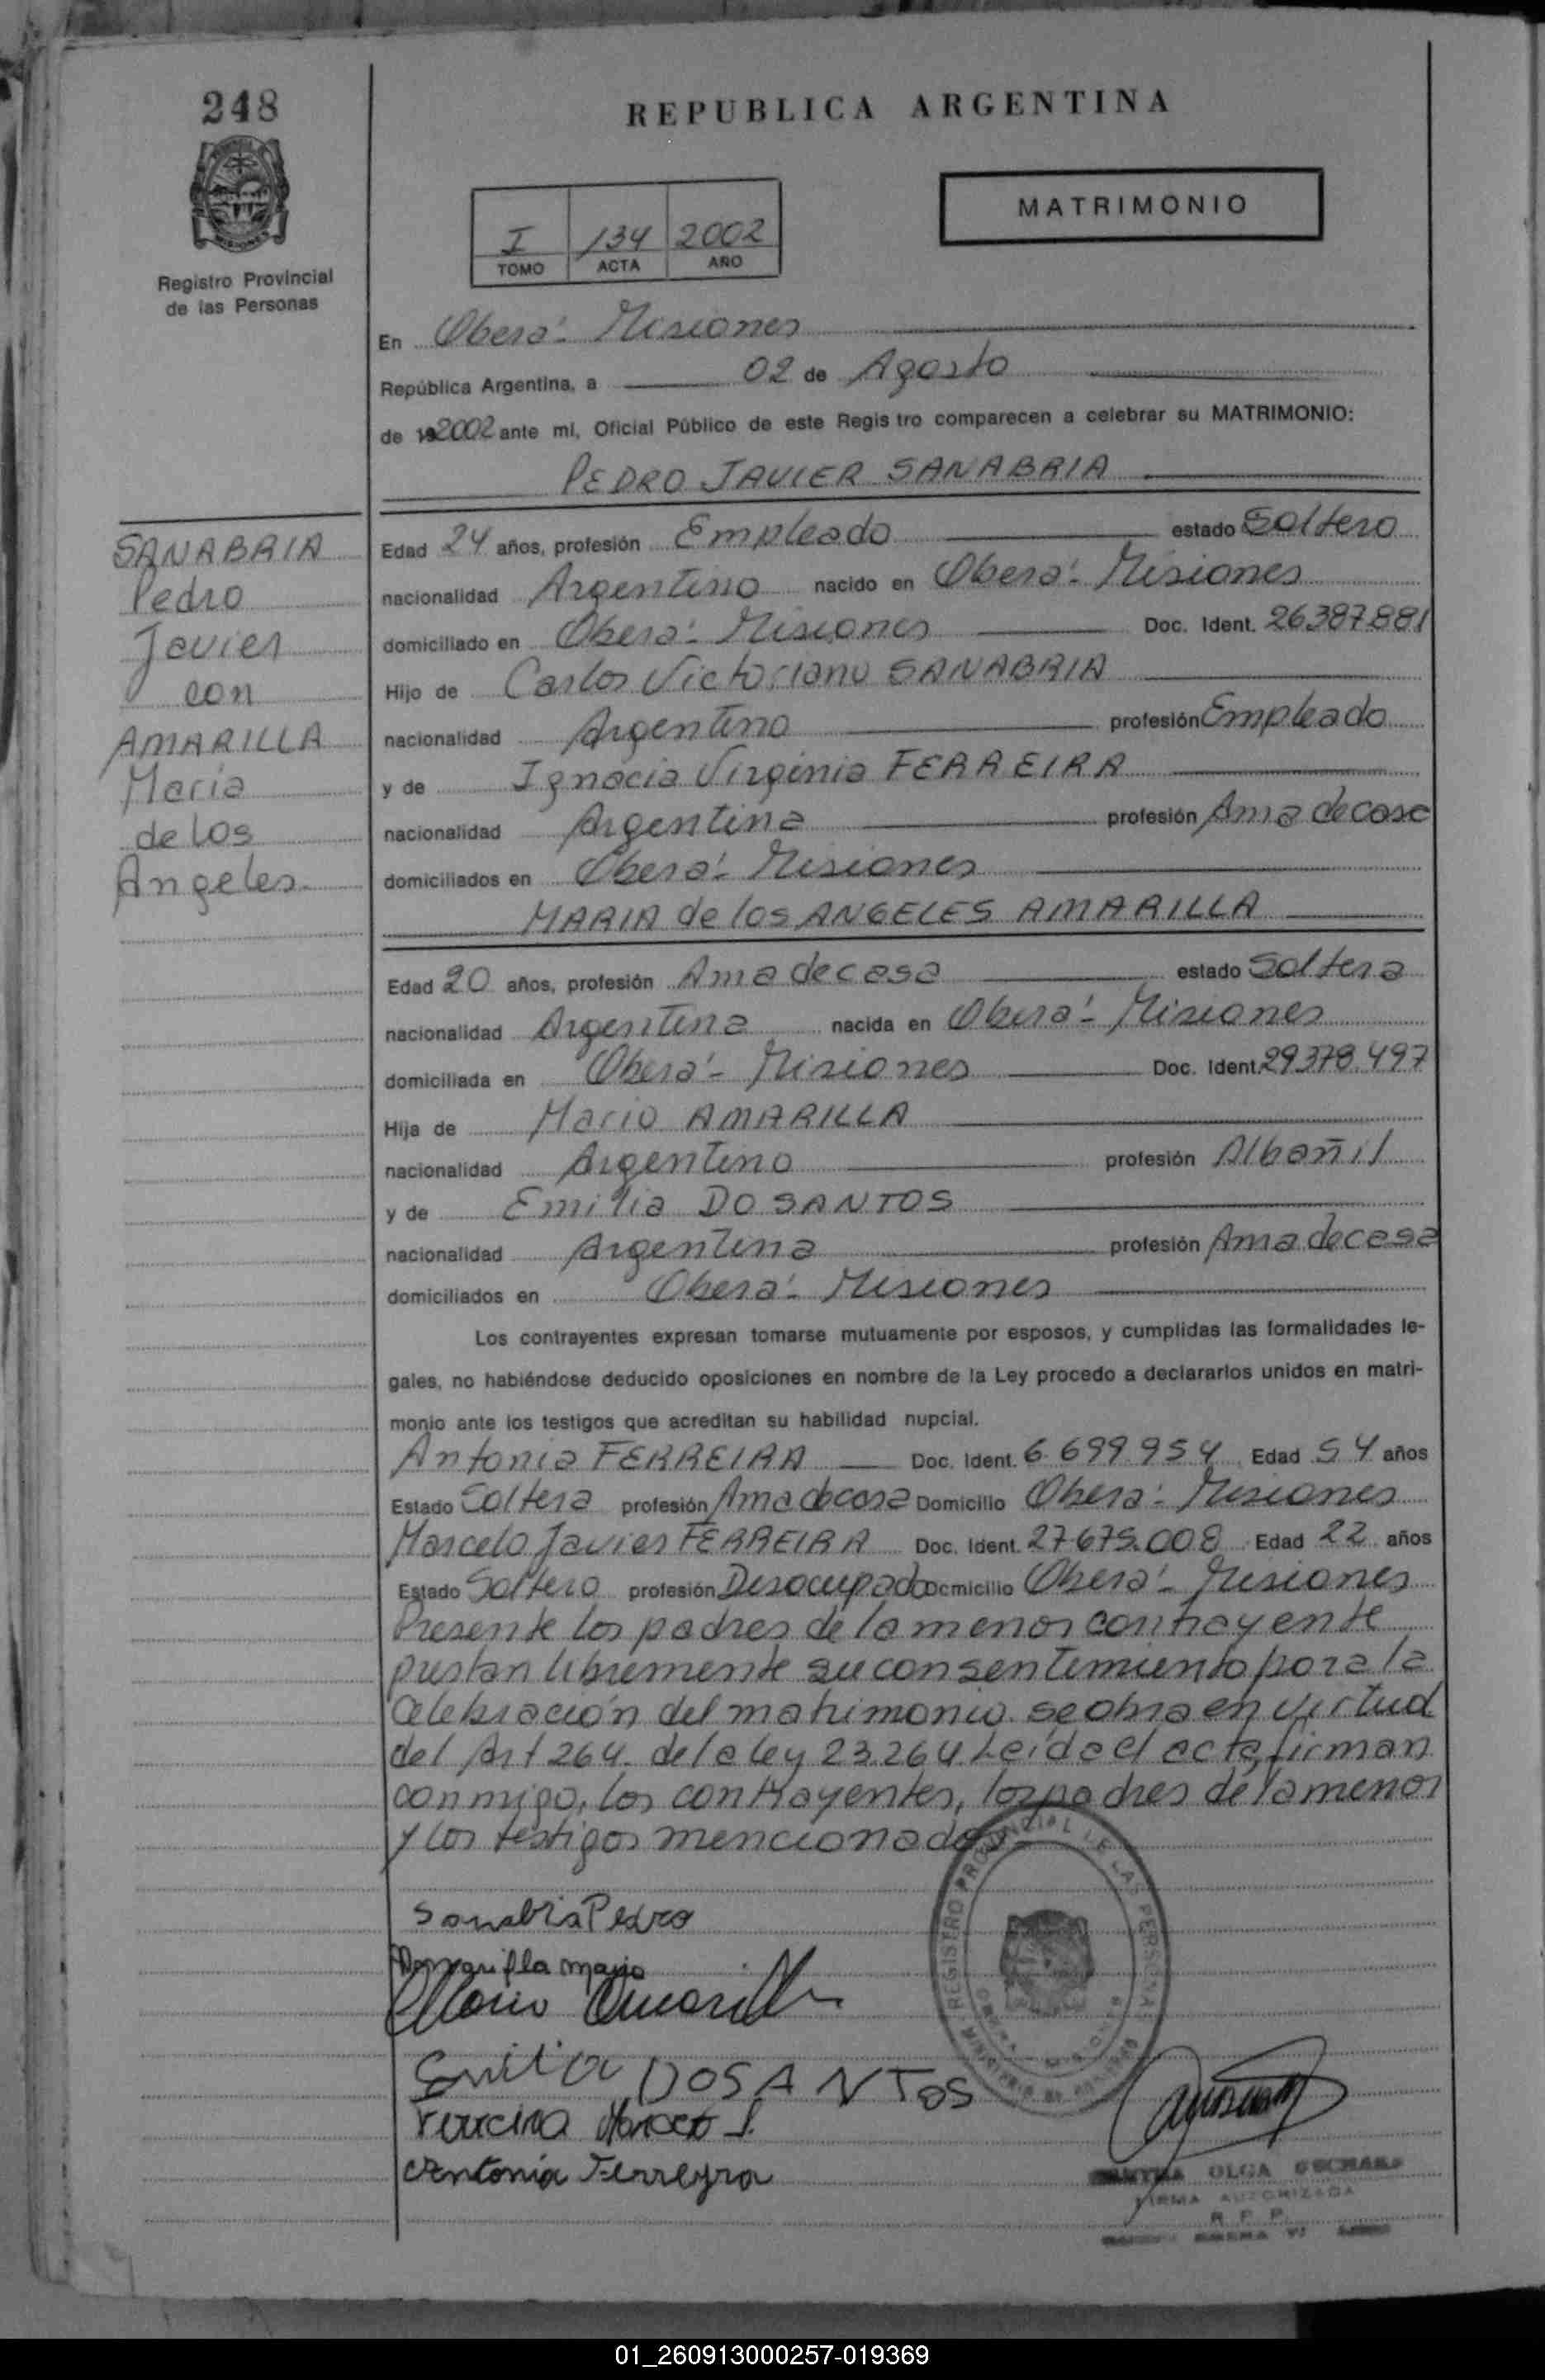 248
REPUBLICA ARGENTINA
MATRIMONIO
I 134 2002
TOMO ACTA AÑO
MISIONES
Registro Provincial
de las Personas
En Oberá - Misiones
República Argentina, a 02 de Agosto
de 192002 ante mi, Oficial Público de este Regis tro comparecen a celebrar su MATRIMONIO:
PEDRO JAVIER SANABRIA
SANABRIA
Pedro
Javier
con
AMARILLA
Maria
de los
Angeles
Edad 24 años, profesión Empleado estado Soltero
nacionalidad Argentino nacido en Oberá - Misiones
domiciliado en Oberá - Misiones Doc. Ident. 26.387.881
Hijo de Carlos Victoriano SANABRIA
nacionalidad Argentino profesión Empleado
y de Ignacia Virginia FERREIRA
nacionalidad Argentina profesión Ama de casa
domiciliados en Oberá - Misiones
MARIA de los ANGELES AMARILLA
Edad 20 años, profesión Ama de casa estado Soltera
nacionalidad Argentina nacida en Oberá - Misiones
domiciliada en Oberá - Misiones Doc. Ident. 29.378.497
Hija de Mario AMARILLA
nacionalidad Argentino profesión Albañil
y de Emilia DO SANTOS
nacionalidad Argentina profesión Ama de casa
domiciliados en Oberá - Misiones
Los contrayentes expresan tomarse mutuamente por esposos, y cumplidas las formalidades le-
gales, no habiéndose deducido oposiciones en nombre de la Ley procedo a declararlos unidos en matri-
monio ante los testigos que acreditan su habilidad nupcial.
Antonia FERREIRA Doc. Ident. 6.699.954 Edad 54 años
Estado Soltera profesión Ama de casa Domicilio Oberá - Misiones
Marcelo Javier FERREIRA Doc. Ident. 27.675.008 Edad 22 años
Estado Soltero profesión Desocupado Domicilio Oberá - Misiones
Presente los padres de la menor contrayente
prestan libremente su consentimiento para la
celebración del matrimonio. se obra en virtud
del Art 264. de la ley 23.264. Leída el acta, firman
conmigo, los contrayentes, los padres de la menor
y los testigos mencionados.-
REGISTRO PROVINCIAL DE LAS PERSONAS
Sanabria Pedro
Mario Amarilla
Emilia DOSANTOS
Ferreira Marcelo J.
Antonia Ferreyra
OLGA
FIRMA AUTORIZADA
R. P. P.
01_260913000257-019369